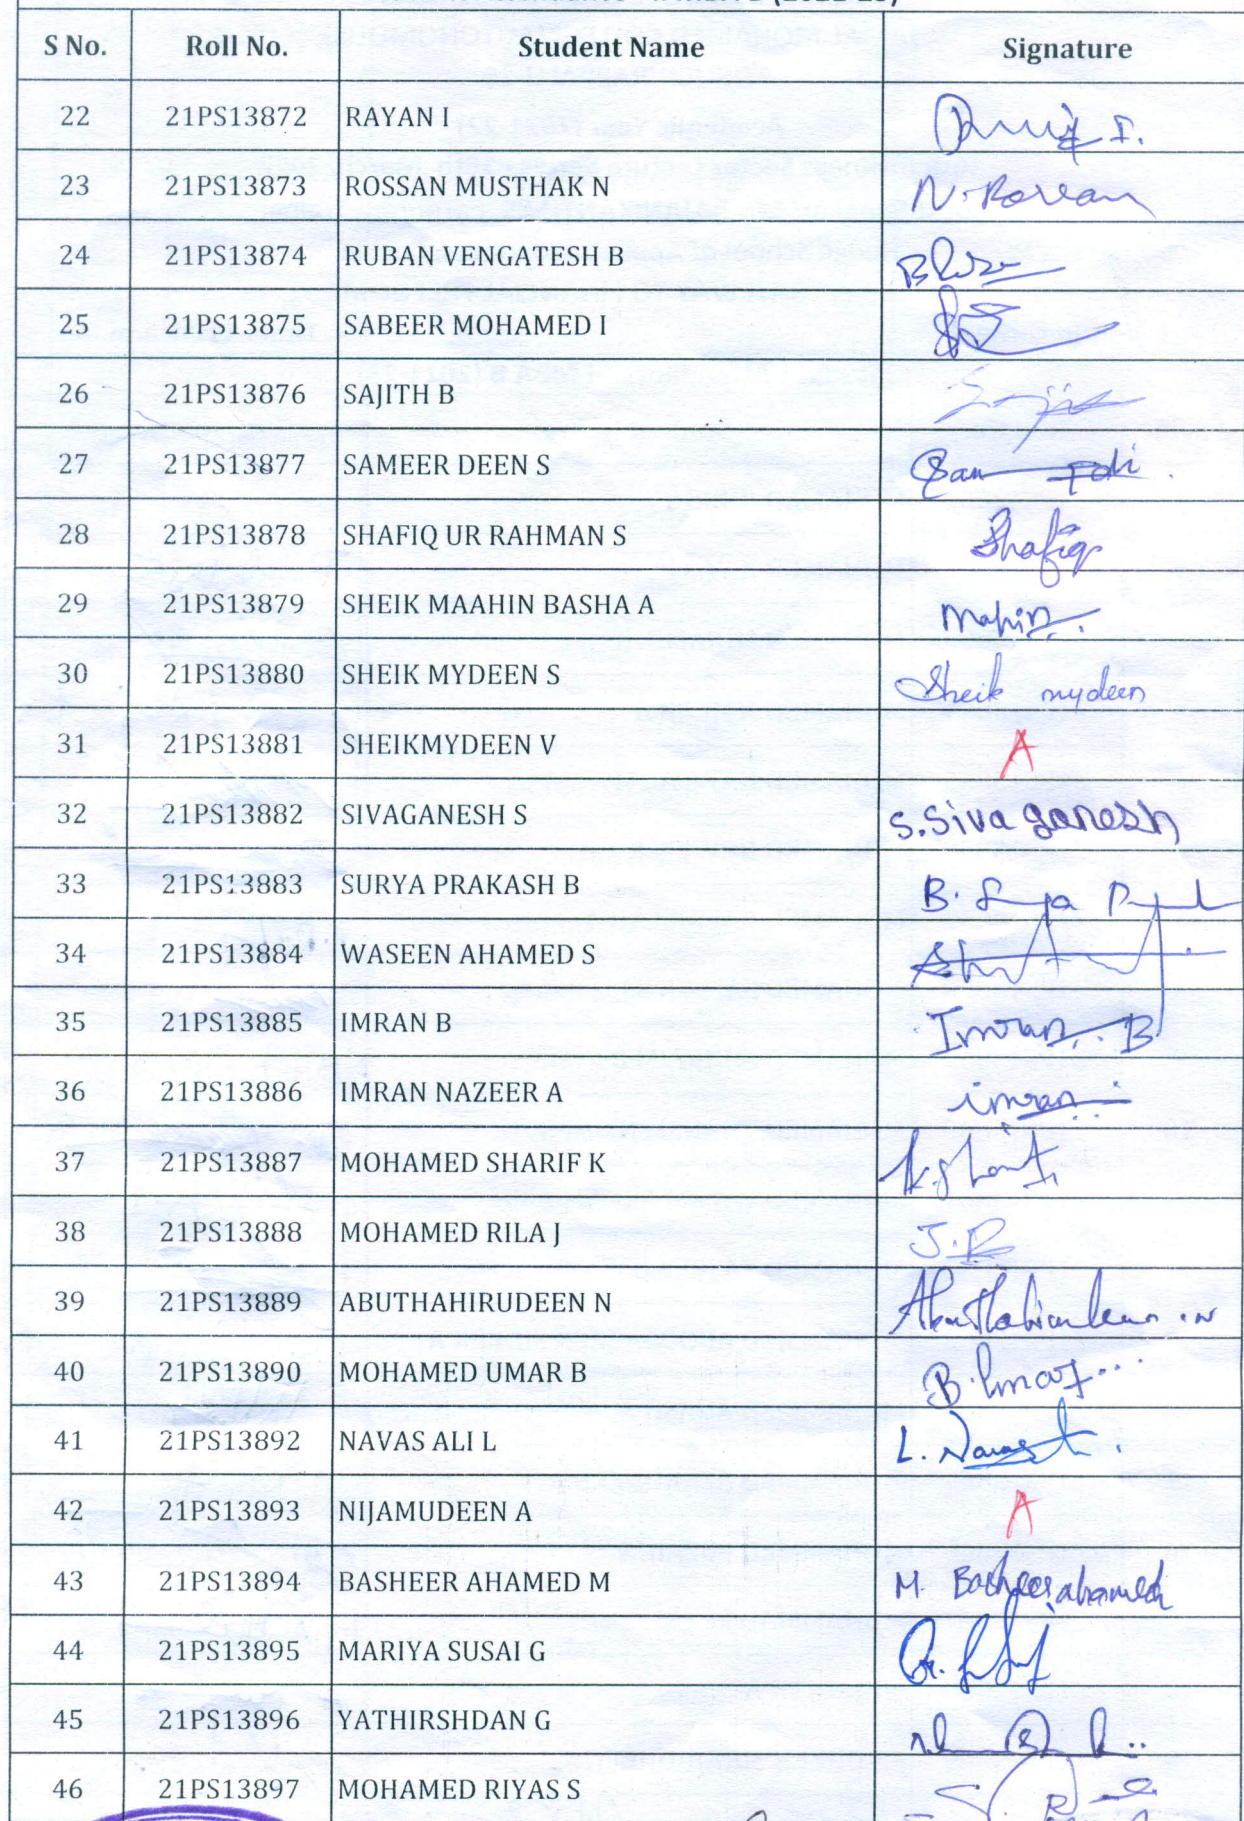 S No. Roll No. Student Name Signature
22 21PS13872 RAYAN I
23 21PS13873 ROSSAN MUSTHAK N N. Rossan
24 21PS13874 RUBAN VENGATESH B
25 21PS13875 SABEER MOHAMED I
26 21PS13876 SAJITH B
27 21PS13877 SAMEER DEEN S
28 21PS13878 SHAFIQ UR RAHMAN S Shafiq
29 21PS13879 SHEIK MAAHIN BASHA A Mahin
30 21PS13880 SHEIK MYDEEN S Sheik mydeen
31 21PS13881 SHEIKMYDEEN V A
32 21PS13882 SIVAGANESH S S.Siva ganesh
33 21PS13883 SURYA PRAKASH B
34 21PS13884 WASEEN AHAMED S
35 21PS13885 IMRAN B Imran. B
36 21PS13886 IMRAN NAZEER A imran
37 21PS13887 MOHAMED SHARIF K
38 21PS13888 MOHAMED RILA J J.R
39 21PS13889 ABUTHAHIRUDEEN N
40 21PS13890 MOHAMED UMAR B B. Umar
41 21PS13892 NAVAS ALI L L. Navas
42 21PS13893 NIJAMUDEEN A A
43 21PS13894 BASHEER AHAMED M M. Basheer ahamed
44 21PS13895 MARIYA SUSAI G
45 21PS13896 YATHIRSHDAN G
46 21PS13897 MOHAMED RIYAS S